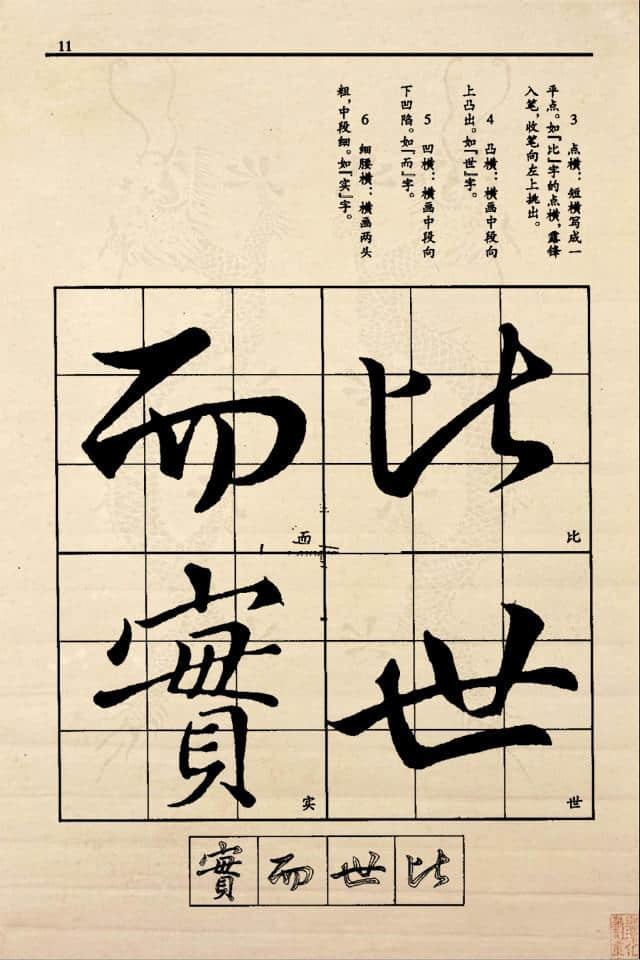 11
3 点横：短横写成一
平点。如『比』字的点横，露锋
入笔，收笔向左上挑出。
4 凸横：横画中段向
上凸出。如『世』字。
5 凹横：横画中段向
下凹陷。如『而』字。
6 细腰横：横画两头
粗，中段细。如『实』字。
比
比
世
世
而
而
實
实
比
世
而
實